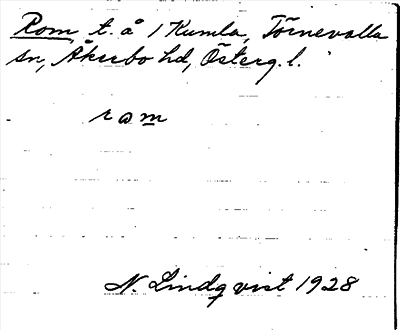 Rom, t. å / Kumla, Törnevalla
sn, Åkerbo hd, Österg. l.
rom
N. Lindqvist 1928